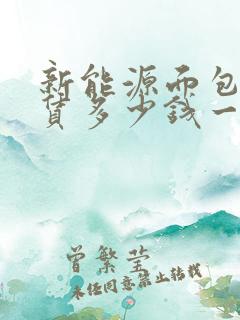 新能源面包
货多少钱一
曾繁莹
未经同意禁止转载